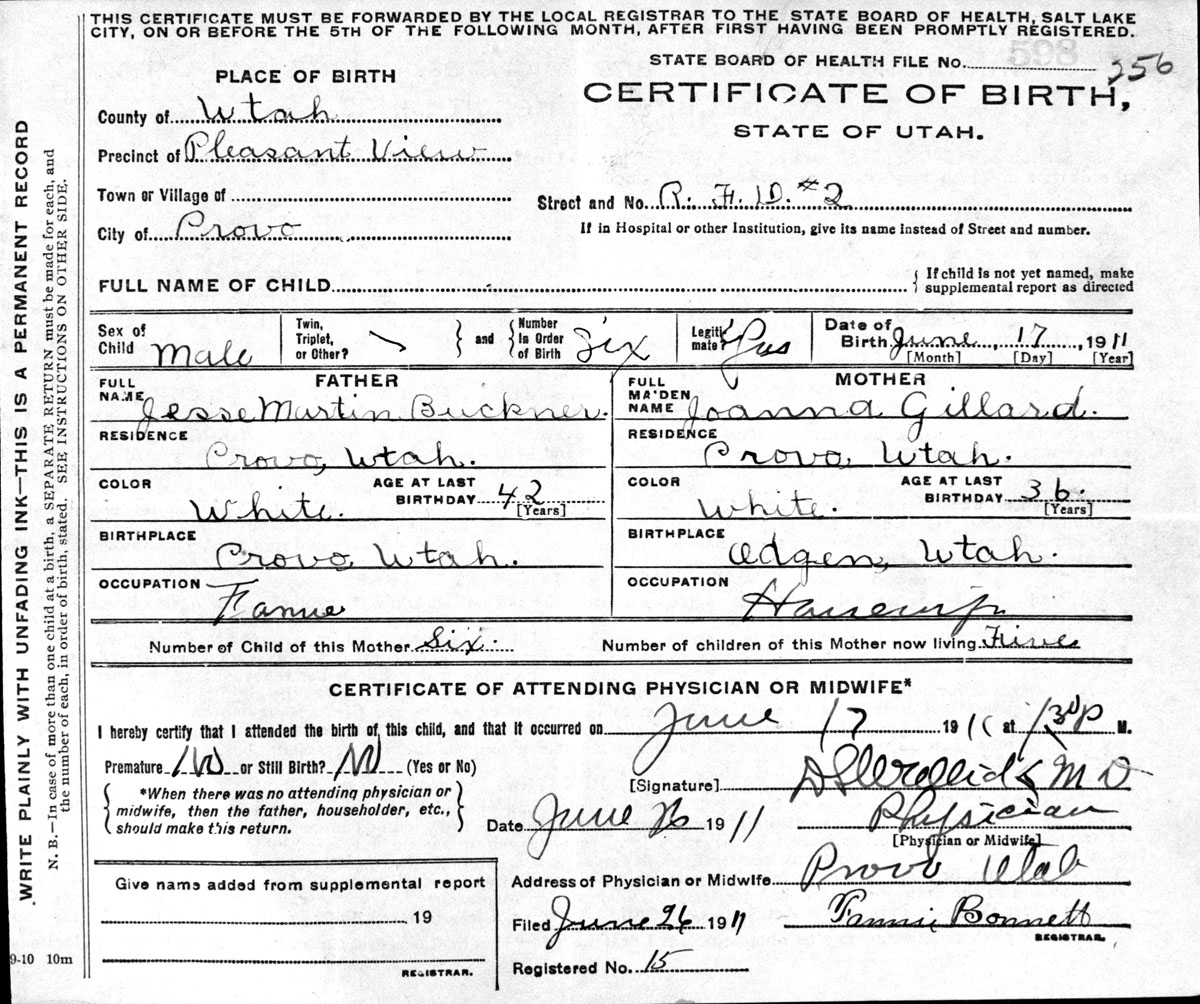 THIS CERTIFICATE MUST BE FORWARDED BY THE LOCAL REGISTRAR TO THE STATE BOARD OF HEALTH, SALT LAKE
CITY, ON OR BEFORE THE 5TH OF THE FOLLOWING MONTH, AFTER FIRST HAVING BEEN PROMPTLY REGISTERED.
WRITE PLAINLY WITH UNFADING INK—THIS IS A PERMANENT RECORD
N. B.—In case of more than one child at a birth, a SEPARATE RETURN must be made for each, and
the number of each, in order of birth, stated. SEE INSTRUCTIONS ON OTHER SIDE.
598
STATE BOARD OF HEALTH FILE No. 256
CERTIFICATE OF BIRTH,
STATE OF UTAH.
PLACE OF BIRTH
County of Utah
Precinct of Pleasant View
Town or Village of
City of Provo
Street and No. R. F. D. #2
If in Hospital or other Institution, give its name instead of Street and number.
FULL NAME OF CHILD
If child is not yet named, make
supplemental report as directed
Sex of Child Male
Twin, Triplet, or Other?
and Number in Order of Birth Six
Legitimate? Yes
Date of Birth June 17, 1911
[Month] [Day] [Year]
FATHER
FULL NAME Jesse Martin Buckner.
RESIDENCE Provo, Utah.
COLOR White. AGE AT LAST BIRTHDAY 42 [Years]
BIRTHPLACE Provo, Utah.
OCCUPATION
MOTHER
FULL MAIDEN NAME Joanna Gillard.
RESIDENCE Provo, Utah.
COLOR White. AGE AT LAST BIRTHDAY 36. [Years]
BIRTHPLACE Odgen, Utah.
OCCUPATION Housewife
Number of Child of this Mother Six
Number of children of this Mother now living Five
CERTIFICATE OF ATTENDING PHYSICIAN OR MIDWIFE*
I hereby certify that I attended the birth of this child, and that it occurred on June 17 1911 at 130 P M.
Premature No or Still Birth? No (Yes or No)
*When there was no attending physician or
midwife, then the father, householder, etc.,
should make this return.
[Signature] M D
Date June 26 1911 Physician
[Physician or Midwife]
Address of Physician or Midwife Provo Utah
Filed June 26 1911 Fannie Bonnett
REGISTRAR.
Registered No. 15
Give name added from supplemental report
19
REGISTRAR.
9-10 10m